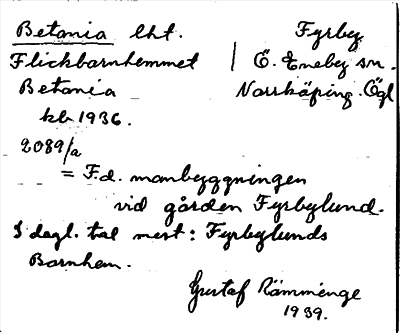 Betania lht. Fyrby
Flickbarnhemmet | Ö. Eneby sn.
Betania Norrköping. Ögl
kb 1936.
2089/a
= F.d. manbyggningen
vid gården Fyrbylund.
I dagl. tal mest: Fyrbylunds
Barnhem.
Gustaf Rämminge
1939.